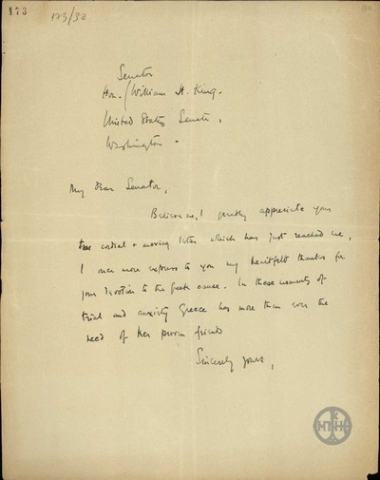 173
173/32
Senator
Hon. / William H. King.
United States Senate,
Washington.
My dear Senator,
Believe me, I greatly appreciate your
cordial & moving letter which has just reached me.
I once more express to you my heartfelt thanks for
your devotion to the Greek cause. In these moments of
trial and anxiety Greece has more than ever the
need of her proven friends
Sincerely yours,